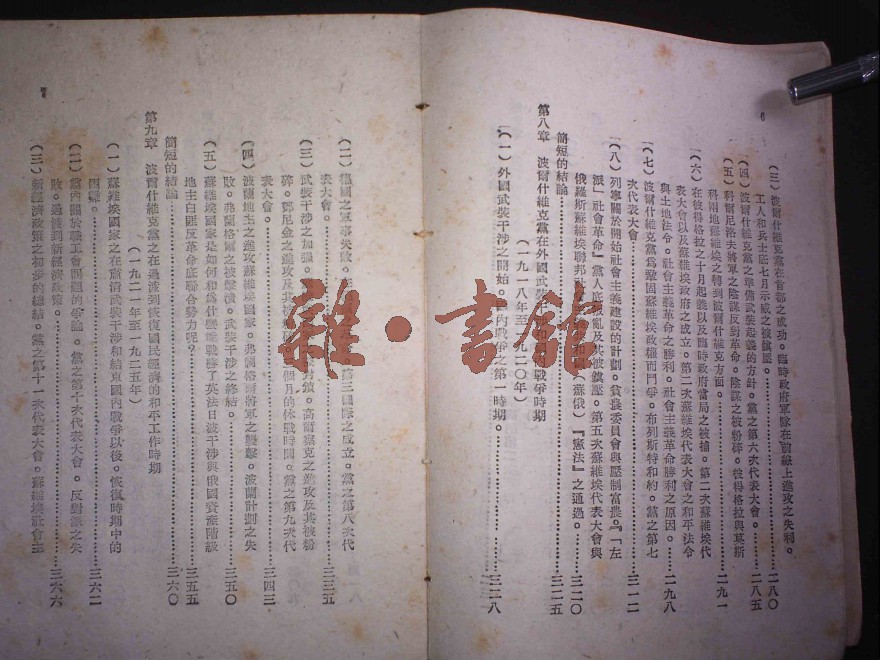 6
(三) 波爾什維克黨在首都之成功。臨時政府軍隊在前線上進攻之失利。
工人和兵士底七月示威之被鎮壓。…………二八〇
(四) 波爾什維克黨之準備武裝起義的方針。黨之第六次代表大會。……二八五
(五) 科爾尼洛夫將軍之陰謀反對革命。陰謀之被粉碎。彼得格拉與莫斯
科兩地蘇維埃之轉到波爾什維克方面。…………二九一
(六) 在彼得格拉之十月起義以及臨時政府當局之被捕。第二次蘇維埃代
表大會以及蘇維埃政府之成立。第二次蘇維埃代表大會之和平法令
與土地法令。社會主義革命之勝利。社會主義革命勝利之原因。……二九八
(七) 波爾什維克黨為鞏固蘇維埃政權而鬥爭。布列斯特和約。黨之第七
次代表大會…………三一二
(八) 列寧關於開始社會主義建設的計劃。貧農委員會與壓制富農。『「左
派」社會革命』黨人底叛亂及其被鎮壓。第五次蘇維埃代表大會與
俄羅斯蘇維埃聯邦(蘇俄)『憲法』之通過。…………三二〇
簡短的結論…………三二五
第八章 波爾什維克黨在外國武裝戰爭時期
(一九一八年至一九二〇年)
(一) 外國武裝干涉之開始。國內戰爭之第一時期。…………三二八
(二) 德國之軍事失敗。第三國際之成立。黨之第八次代
表大會。…………三三五
(三) 武裝干涉之加強。封鎖。高爾察克之進攻及其被粉
碎。鄧尼金之進攻及其個月的休戰時間。黨之第九次代
表大會。…………三四三
(四) 波蘭地主之進攻蘇維埃國家。弗蘭格爾將軍之襲擊。波蘭計劃之失
敗。弗蘭格爾之被擊潰。武裝干涉之終結。…………三五〇
(五) 蘇維埃國家是如何和為什麼戰勝了英法日波干涉與俄國資產階級
地主白匪反革命底聯合勢力呢?…………三五五
簡短的結論…………三六〇
第九章 波爾什維克黨之在過渡到恢復國民經濟的和平工作時期
(一九二一年至一九二五年)
(一) 蘇維埃國家之在肅清武裝干涉和結束國內戰爭以後,恢復時期中的
困難。…………三六二
(二) 黨內關於職工會問題的爭論。黨之第十次代表大會。反對派之失
敗。過渡到新經濟政策。…………三六六
(三) 新經濟政策之初步的總結。黨之第十一次代表大會。蘇維埃社會主
雜·書館